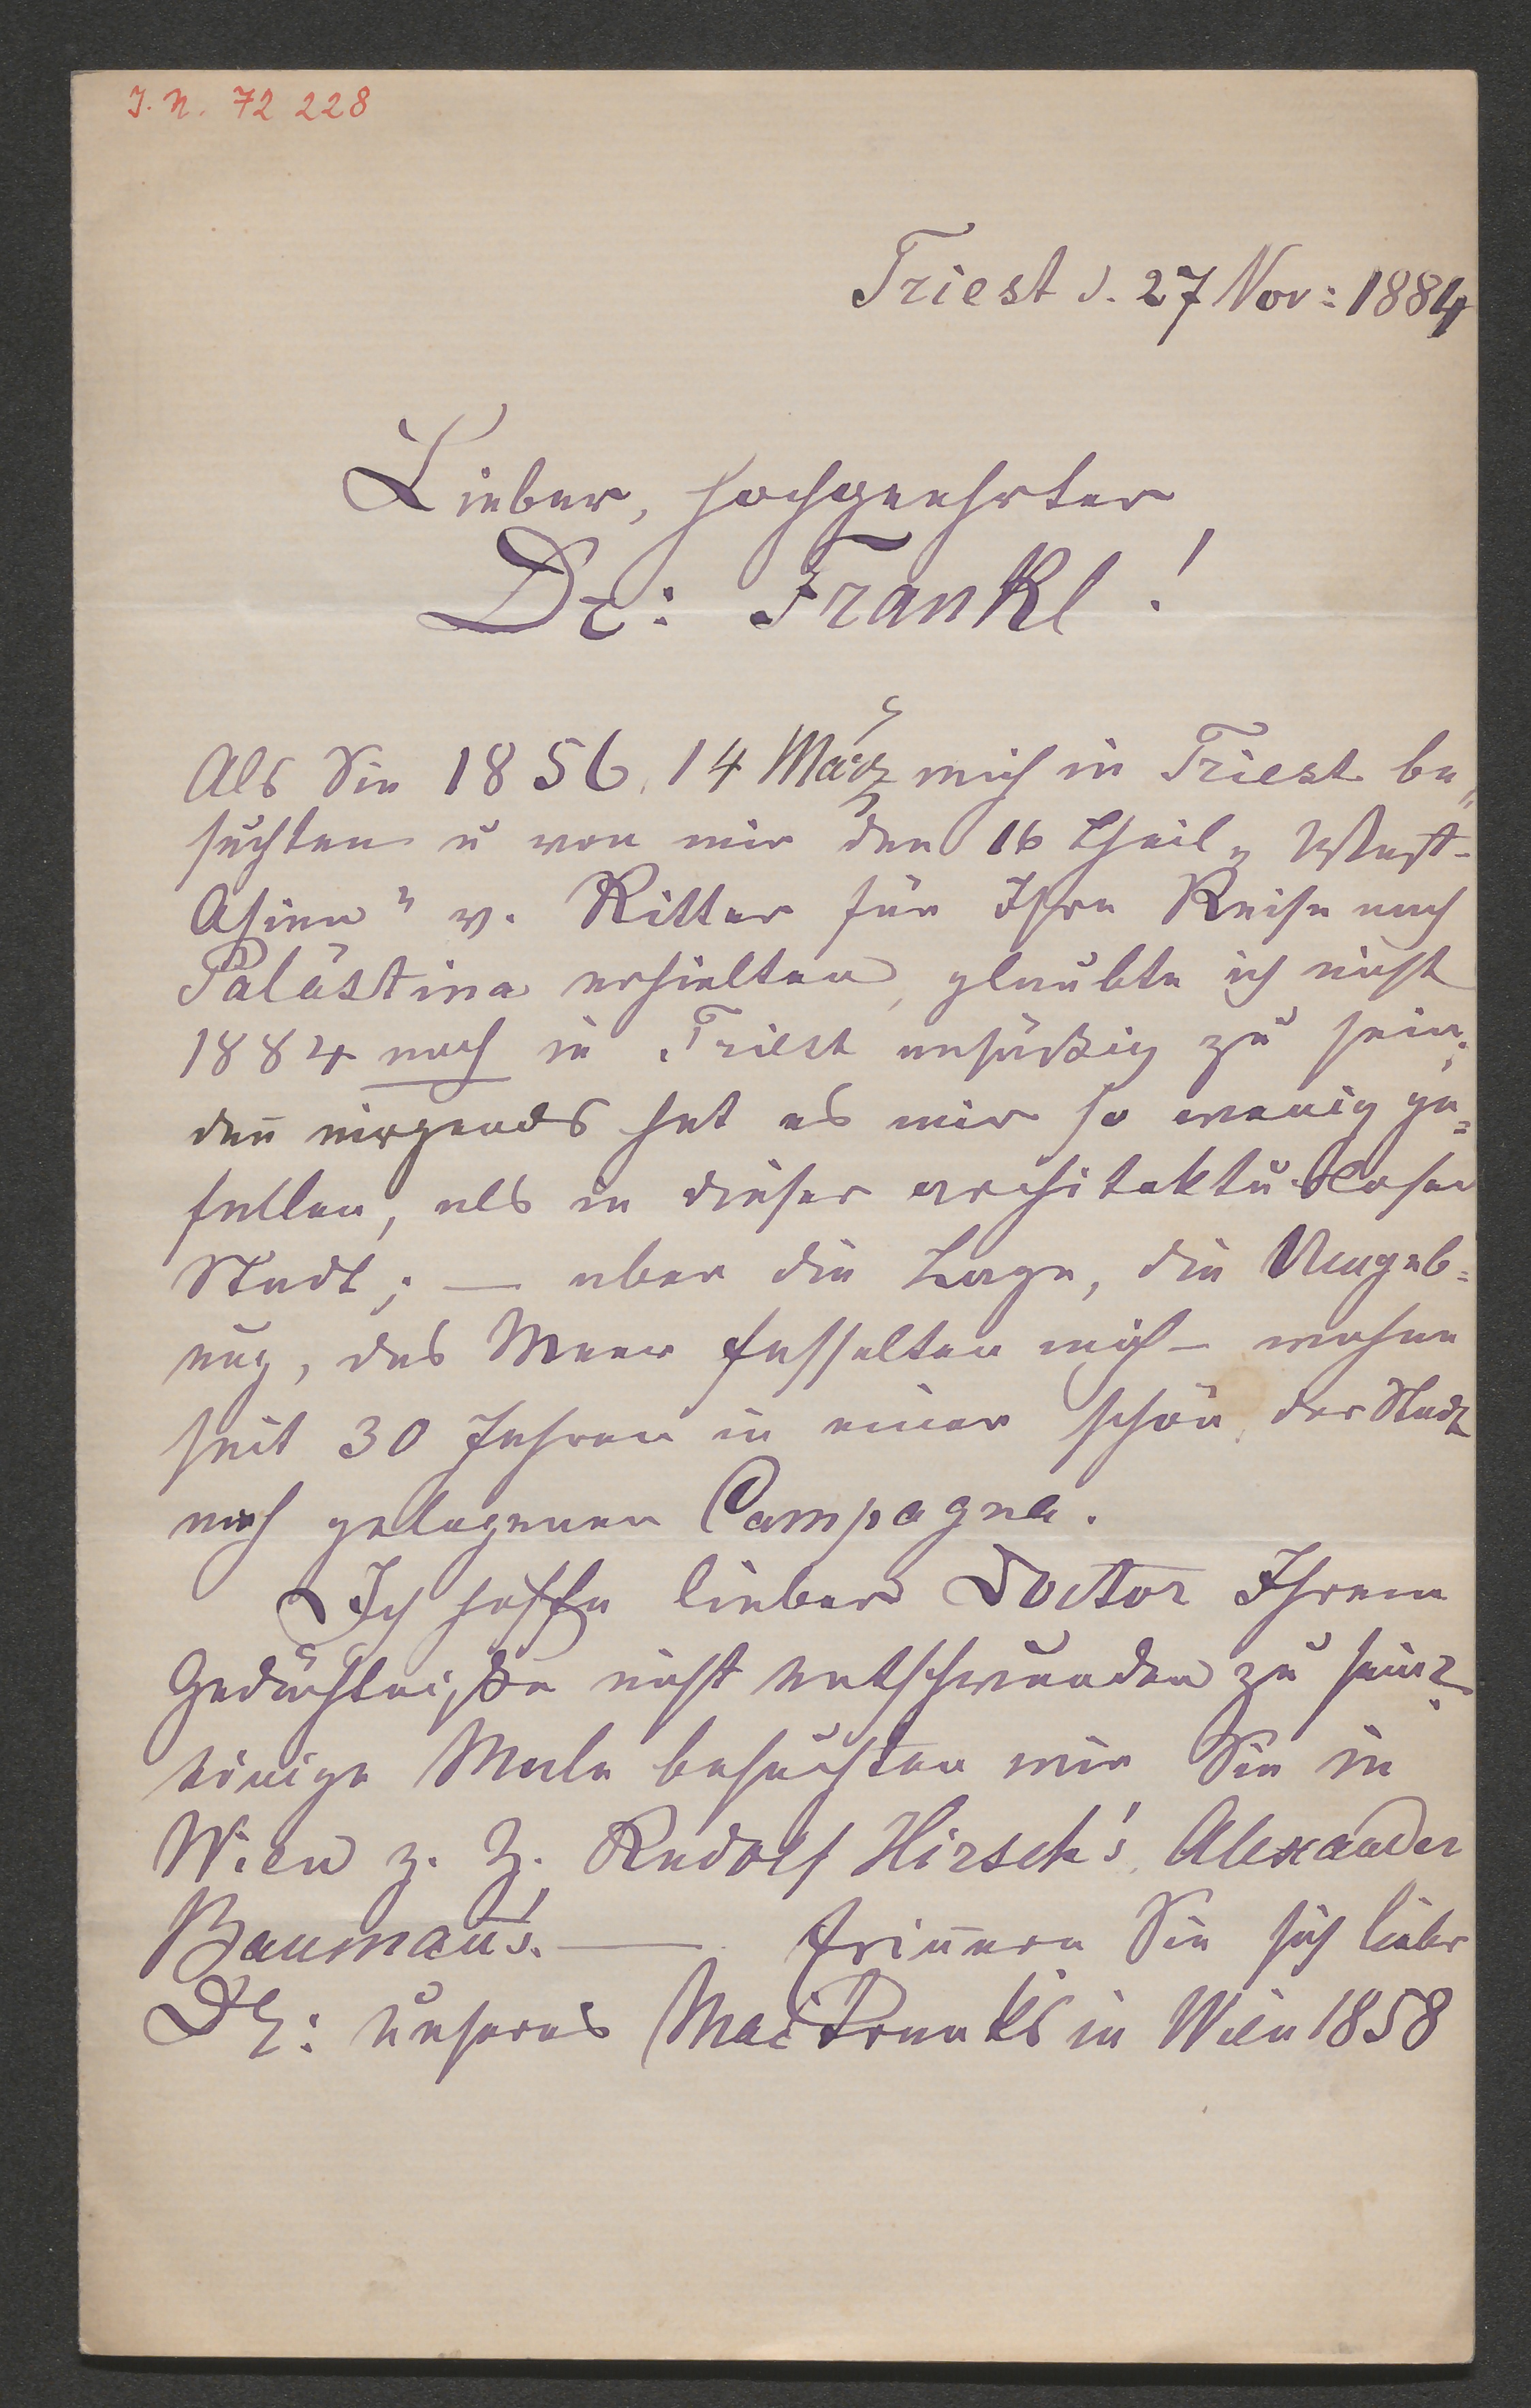 I. N. 72 228
Triest d. 27 Nov: 1884
Lieber, hochgeehrter
Dr: Frankl!
Als Sie 1856, 14 März mich in Triest be„
suchten u von mir den 16 Theil „West-
Asien" v. Ritter für Ihre Reise nach
Palästina erhielten, glaubte ich nicht
1884 noch in Triest ansäßig zu sein;
den̄ nirgends hat es mir so wenig ge=
fallen, als in dieser architekturlosen
Stadt; — aber die Lage, die Umgeb=
ung, das Meer fesselten mich – wohne
seit 30 Jahren in einer schön, der Stadt
nah gelegenen Campagne.
Ich hoffe lieber Doctor Ihrem
Gedächtniße nicht entschwunden zu sein?
einige Male besuchten wir Sie in
Wien z. Z. Rudolf Hirsch's, Alexander
Bauman̄s. — Erin̄ern Sie sich lieber
Dr: unseres Maitrunks in Wien 1858